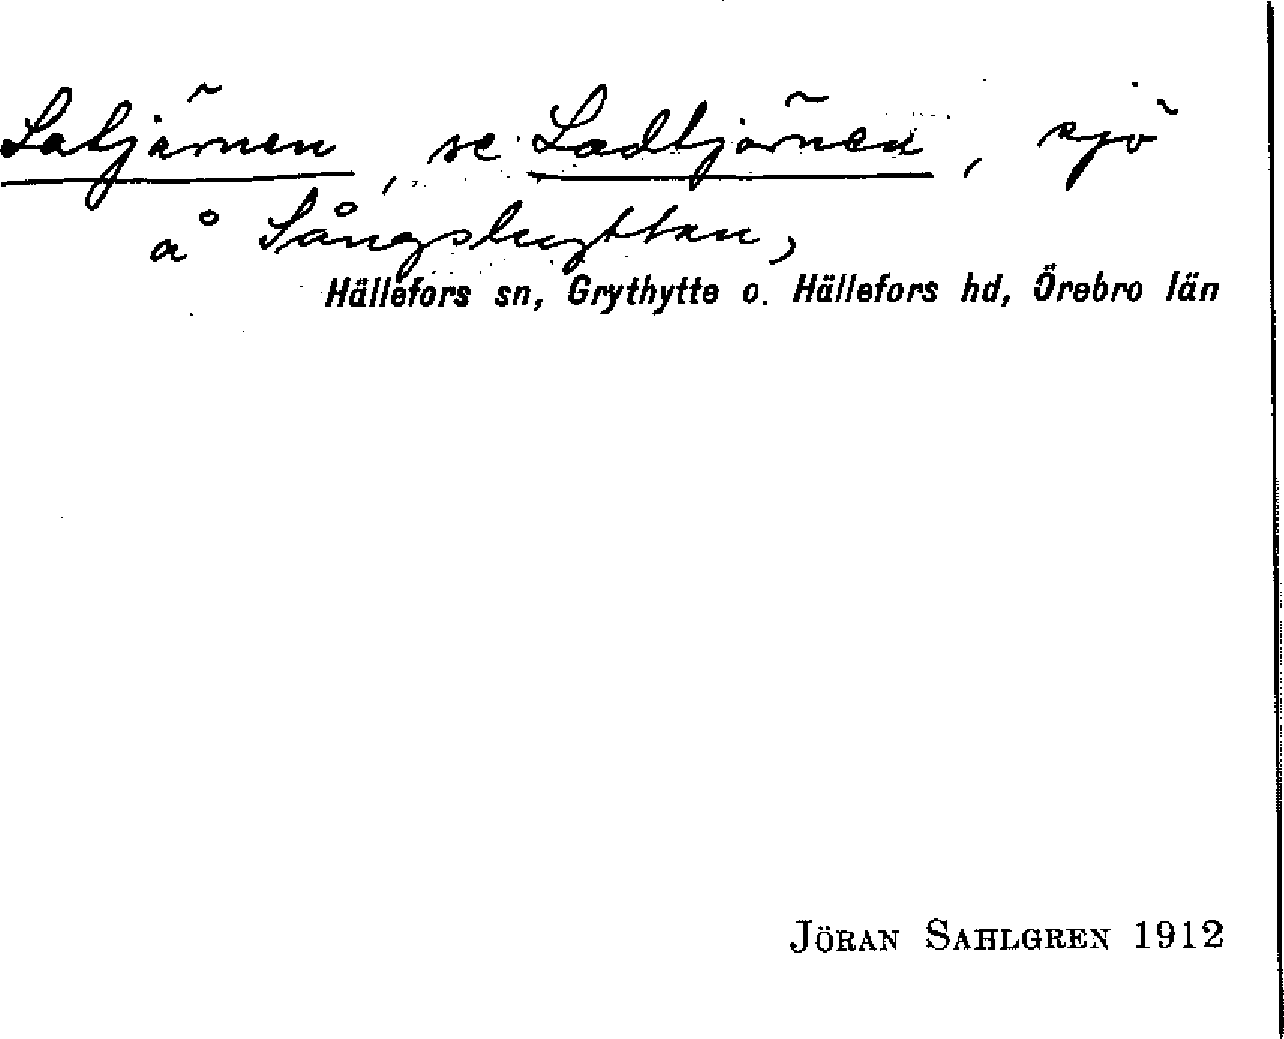 Latjärnen, se Ladtjärnen, sjö
å Sångshyttan,
Hällefors sn, Grythytte o. Hällefors hd, Örebro län
JÖRAN SAHLGREN 1912